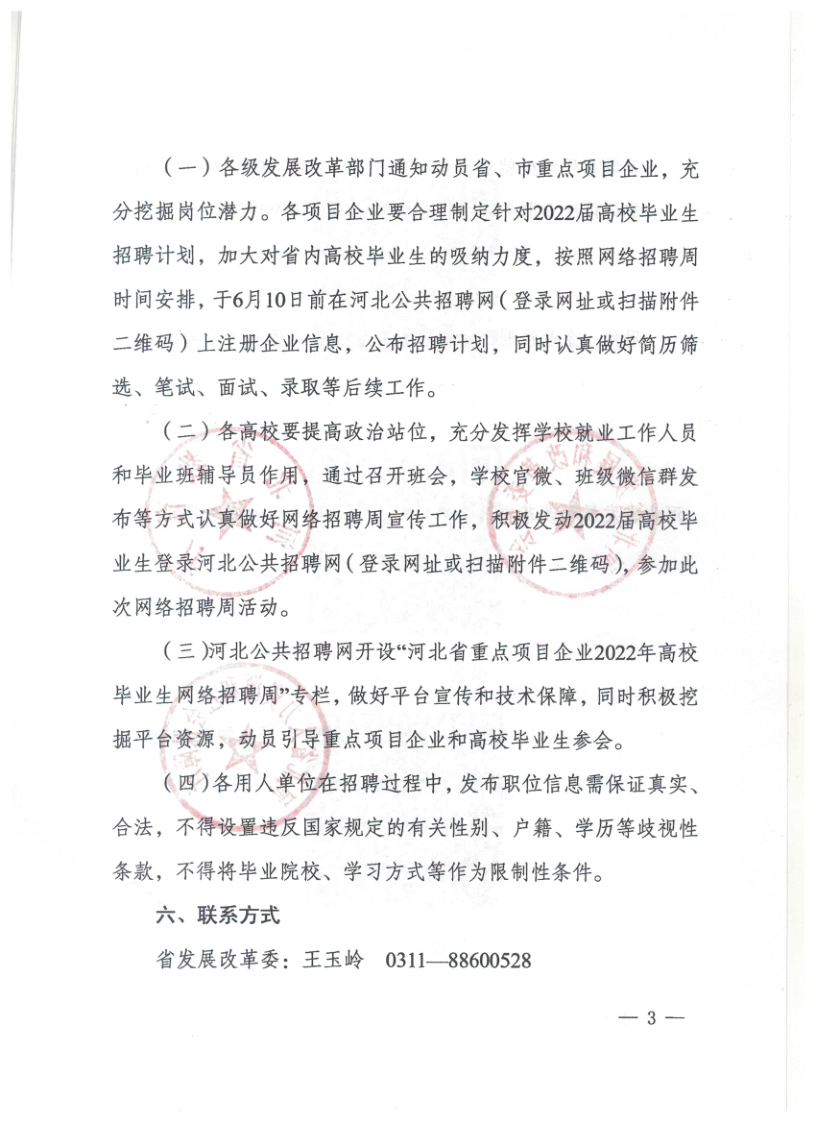 （一）各级发展改革部门通知动员省、市重点项目企业，充
分挖掘岗位潜力。各项目企业要合理制定针对2022届高校毕业生
招聘计划，加大对省内高校毕业生的吸纳力度，按照网络招聘周
时间安排，于6月10日前在河北公共招聘网（登录网址或扫描附件
二维码）上注册企业信息，公布招聘计划，同时认真做好简历筛
选、笔试、面试、录取等后续工作。
（二）各高校要提高政治站位，充分发挥学校就业工作人员
和毕业班辅导员作用，通过召开班会，学校官微、班级微信群发
布等方式认真做好网络招聘周宣传工作，积极发动2022届高校毕
业生登录河北公共招聘网（登录网址或扫描附件二维码），参加此
次网络招聘周活动。
（三）河北公共招聘网开设“河北省重点项目企业2022年高校
毕业生网络招聘周”专栏，做好平台宣传和技术保障，同时积极挖
掘平台资源，动员引导重点项目企业和高校毕业生参会。
（四）各用人单位在招聘过程中，发布职位信息需保证真实、
合法，不得设置违反国家规定的有关性别、户籍、学历等歧视性
条款，不得将毕业院校、学习方式等作为限制性条件。
六、联系方式
省发展改革委：王玉岭 0311—88600528
— 3 —